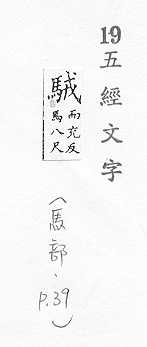 19
五經文字
駥
而充反
馬八尺
(馬部、p.39)